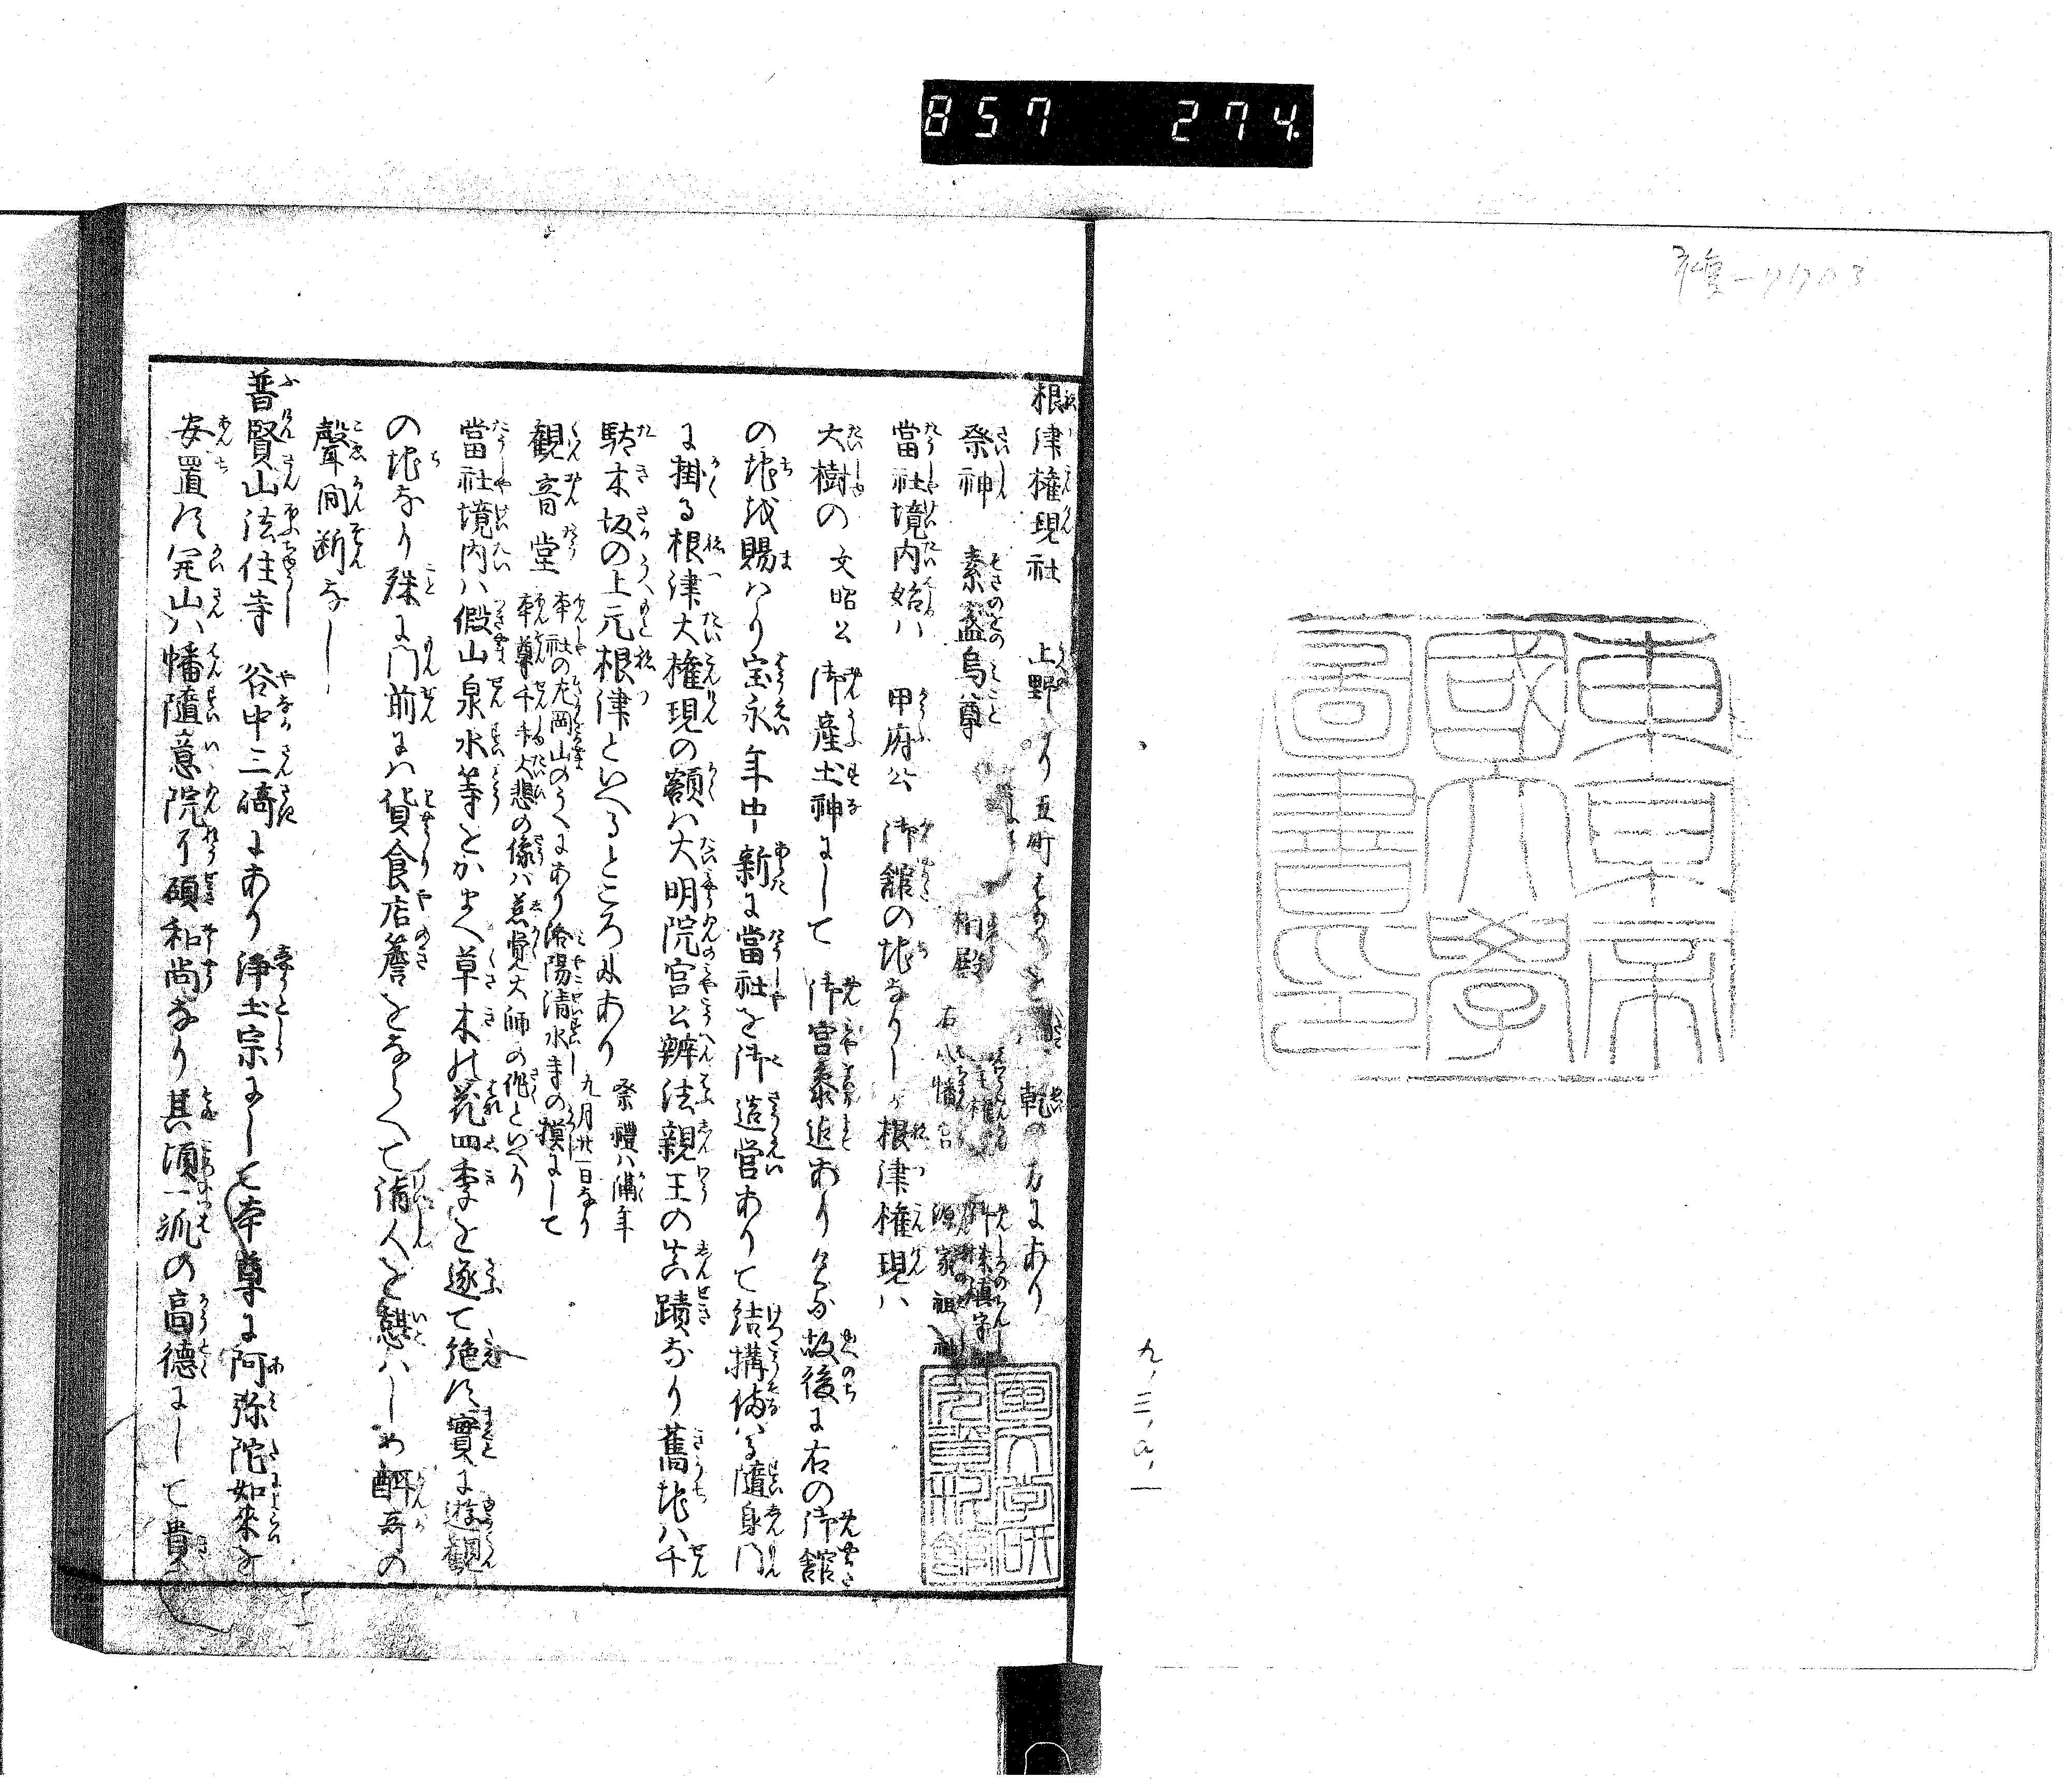 857 274
東京帝
國大學
圖書印
九.三.a.一
根津権現社 上野より 五町 乾の方にあり
祭神 素盞烏尊 相殿
右 八幡宮 源家祖神
當社境内始ハ 甲府公 御舘の地なりしか根津権現ハ
大樹の 文昭公 御產土神にして 御宮参返ありける故後に右の御舘
の地を賜ハり宝永年中新に當社を御造営ありて結搆備ハる隨身門
に掛る根津大権現の額ハ大明院宮公辨法親王の真蹟なり舊地ハ千
駄木坂の上元根津といへるところにあり 祭禮ハ隔年
九月廿一日なり
観音堂 本社の左岡山のうへにあり洛陽清水寺の摸にして
本尊千手大悲の像ハ慈覚大師の作といへり
當社境内ハ假山泉水等をかまへ草木の花四季を逐て絶す實に遊観
の地なり殊に門前にハ貨食店簷をならへて詣人を憩ハしめ酣哥の
聲間断なし
普賢山法住寺 谷中三﨑にあり浄土宗にして本尊に阿弥陀如來を
安置す開山ハ幡隨意院了碩和尚なり其頃一派の高德にして貴